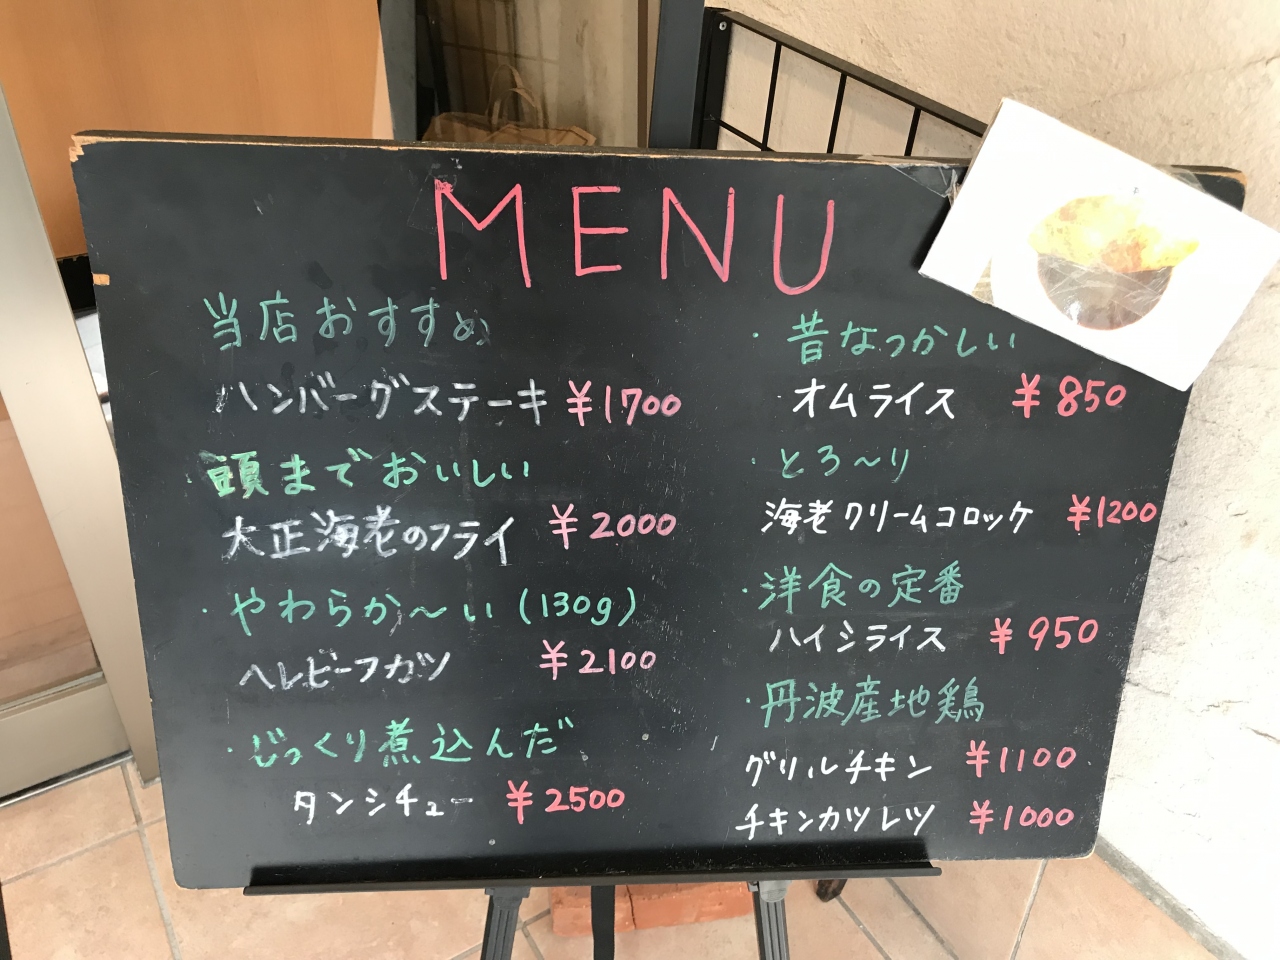 MENU
当店おすすめ
ハンバーグステーキ ¥1700
・頭までおいしい
大正海老のフライ ¥2000
・やわらか〜い(130g)
ヘレビーフカツ ¥2100
・じっくり煮込んだ
タンシチュー ¥2500
・昔なつかしい
・オムライス ¥850
・とろ〜り
海老クリームコロッケ ¥1200
・洋食の定番
ハイシライス ¥950
・丹波産地鶏
グリルチキン ¥1100
チキンカツレツ ¥1000